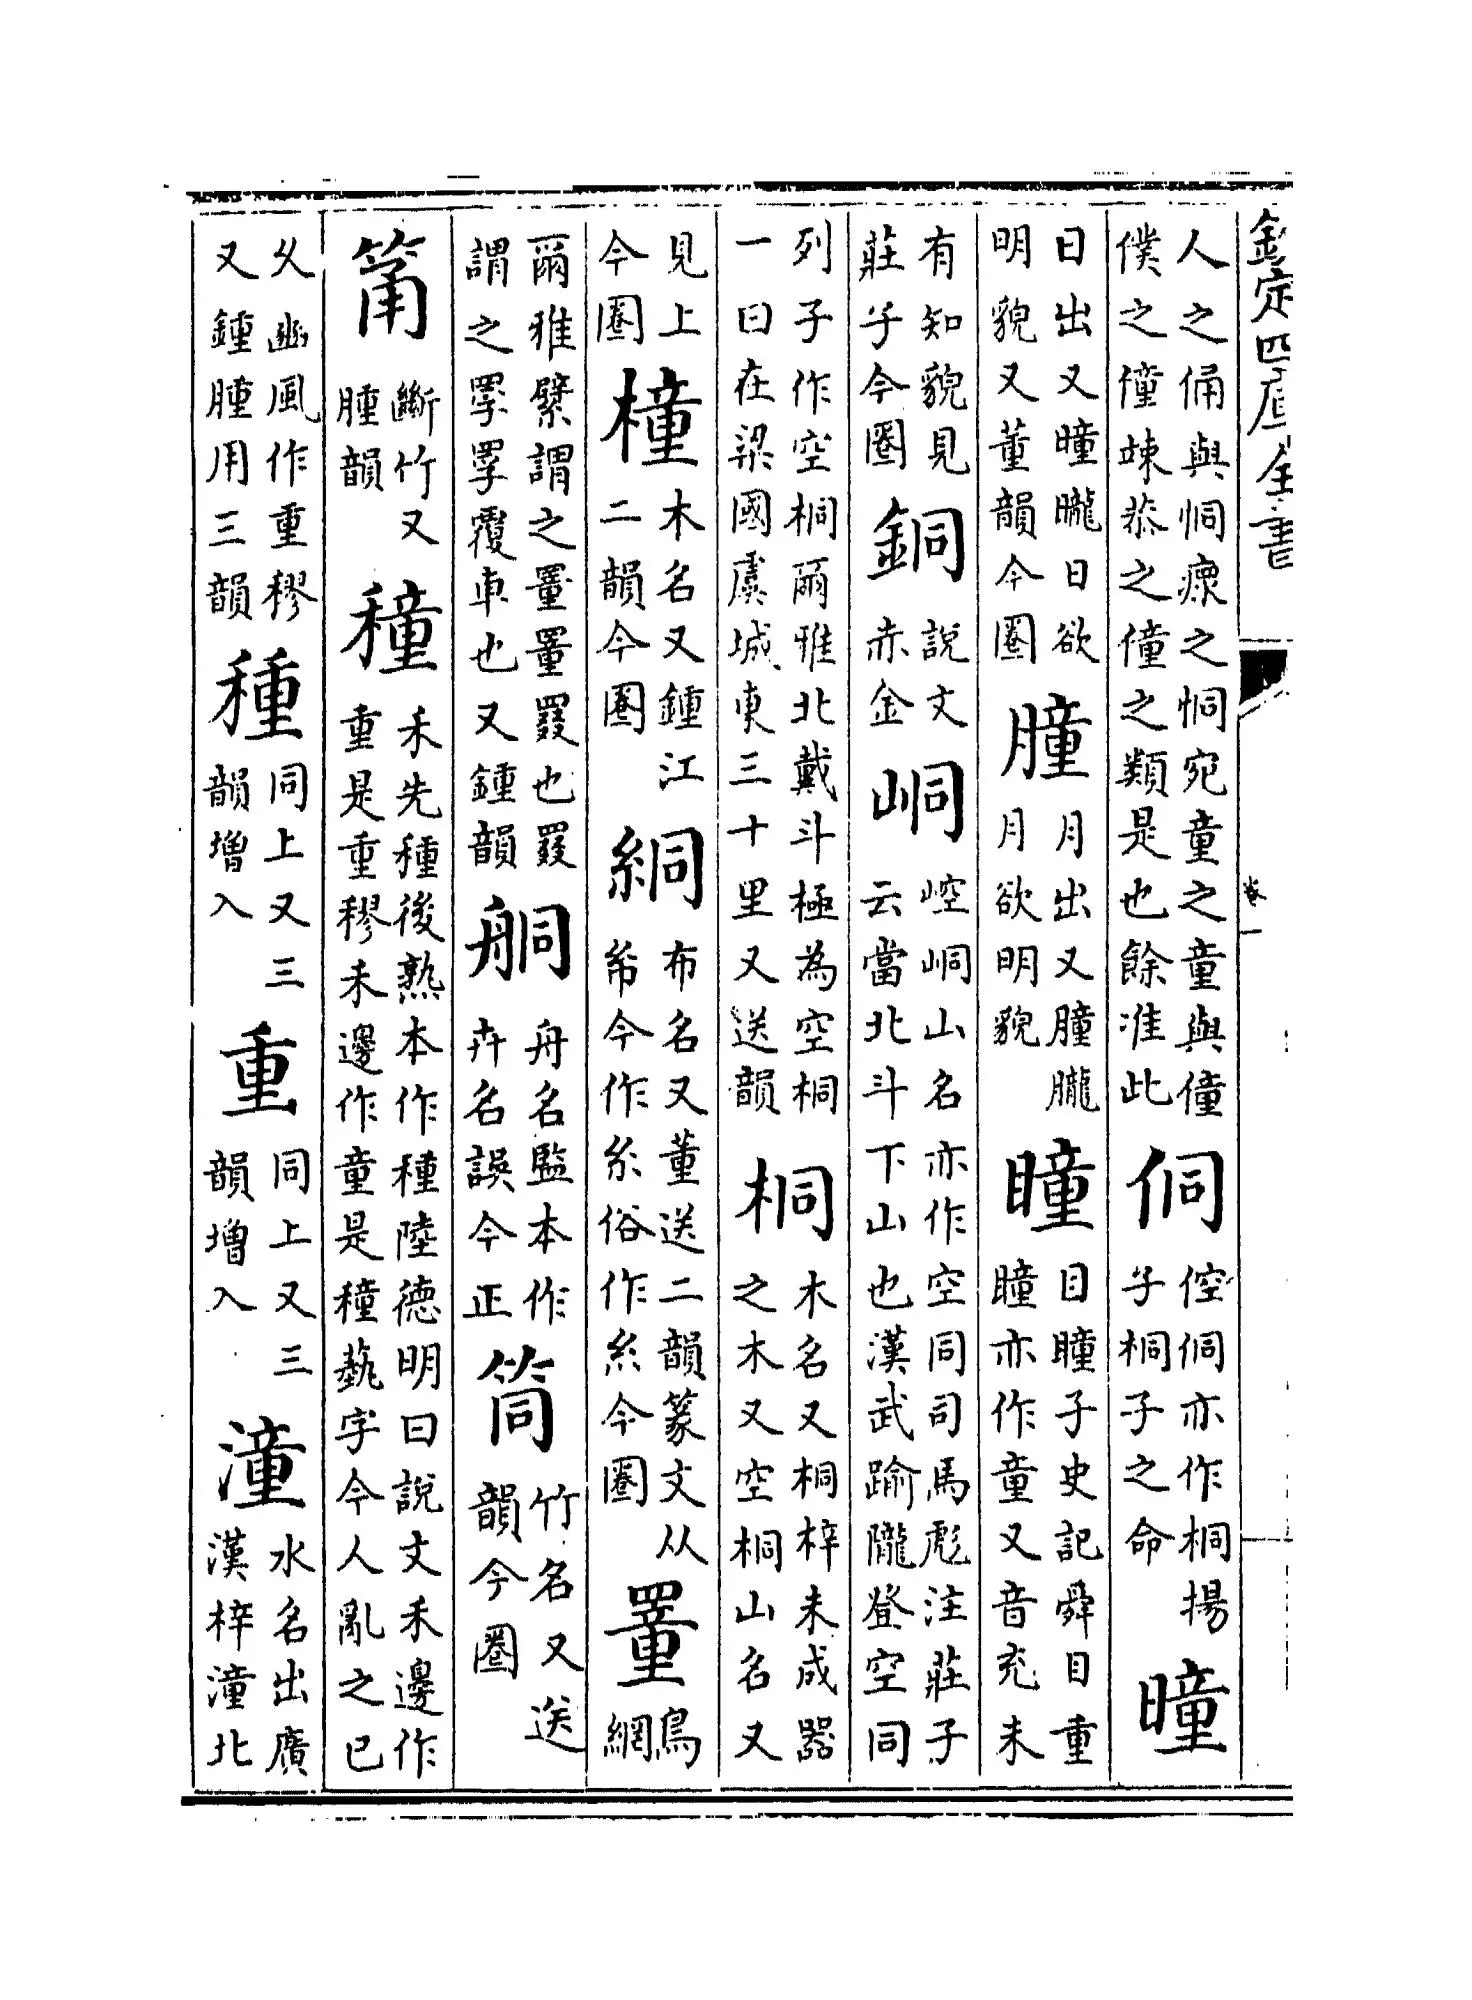 欽定四庫全書
卷一
人之俑與恫瘝之恫宛童之童與僮
僕之僮竦恭之僮之類是也餘准此
侗
倥侗亦作桐揚
子桐子之命
曈
日出又曈曨日欲
明貌又董韻今圈
朣
月出又朣朧
月欲明貌
瞳
目瞳子史記舜目重
瞳亦作童又音充未
有知貌見
莊子今圈
銅
說文
赤金
峒
崆峒山名亦作空同司馬彪注莊子
云當北斗下山也漢武踰隴登空同
列子作空桐爾雅北戴斗極為空桐
一曰在梁國虞城東三十里又送韻
桐
木名又桐梓未成器
之木又空桐山名又
見上
今圈
橦
木名又鍾江
二韻今圈
絧
布名又董送二韻篆文从
今作糸俗作糸今圈
罿
鳥
網
爾雅繴謂之罿罿罬也罬
謂之罦罦覆車也又鍾韻
舟名監本作
卉名誤今正
筒
竹名又送
韻今圈
筩
斷竹又
腫韻
穜
禾先種後熟本作種陸德明曰說文禾邊作
重是重穋禾邊作童是穜蓺字今人亂之已
久豳風作重穋
又鍾腫用三韻
種
同上又三
韻增入
重
同上又三
韻增入
潼
水名出廣
漢梓潼北